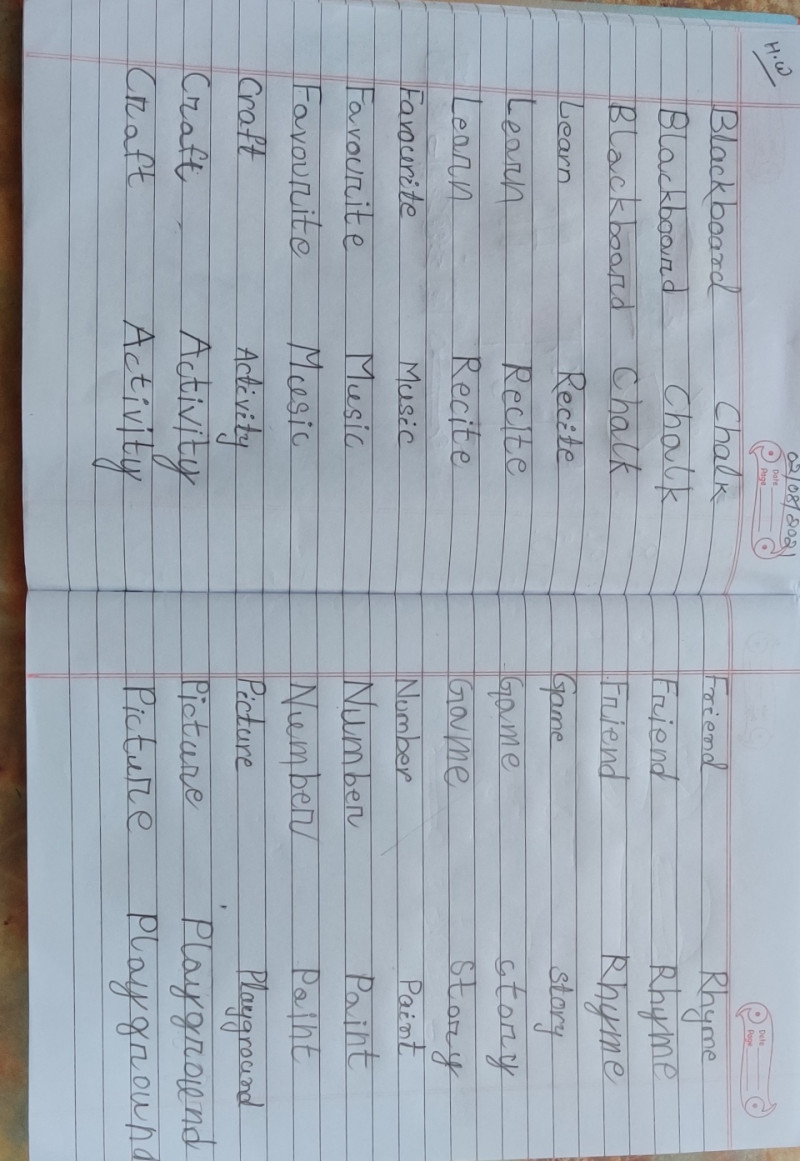 H.W
02/08/2021
Date
Page
Blackboard Chalk
Blackboard Chalk
Blackboard Chalk
Learn Recite
Learn Recite
Learn Recite
Favourite Music
Favourite Music
Favourite Music
Craft Activity
Craft Activity
Craft Activity
Date
Page
Friend Rhyme
Friend Rhyme
Friend Rhyme
Game story
Game story
Game Story
Number Paint
Number Paint
Number Paint
Picture Playground
Picture Playground
Picture Playground